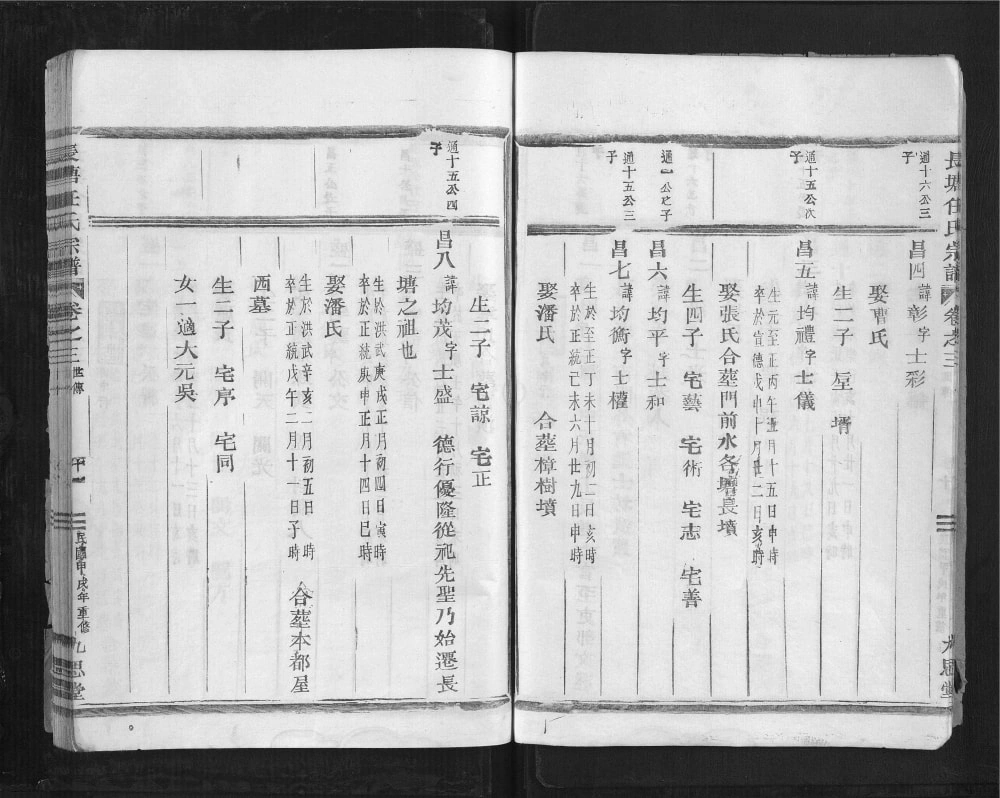 長塘任氏宗譜 卷之三
九思堂
通十六公三子
昌四 諱彰字士彩
娶曹氏
生二子 垕 壻
通十五公次子
昌五 諱均禮字士儀
生元至正丙午五月十五日申時
卒於宣德戊申十月廿二日亥時
娶張氏合葬門前水各壋長墳
生四子 宅藝 宅術 宅志 宅善
通一公之子
昌六 諱均平字士和
通十五公三子
昌七 諱均衡字士權
生於至正丁未十月初二日亥時
卒於正統己未六月廿九日申時
娶潘氏 合葬樟樹墳
生二子 宅諒 宅正
通十五公四子
昌八 諱均茂字士盛 德行優隆從祀先聖乃始遷長
塘之祖也
生於洪武庚戌正月初四日寅時
卒於正統庚申正月十四日巳時
娶潘氏
生於洪武辛亥二月初五日時
卒於正統戊午二月十一日子時
合葬本都屋
西墓
生二子 宅序 宅同
女一適大元吳
長塘任氏宗譜 卷之三 世傳
民國甲戌年重修 九思堂